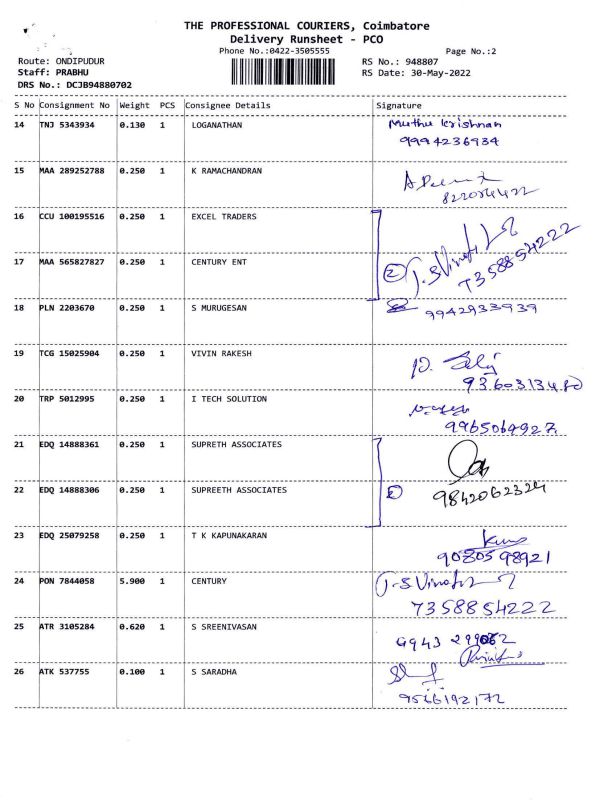 THE PROFESSIONAL COURIERS, Coimbatore
Delivery Runsheet - PCO
Phone No.:0422-3505555 Page No.:2
Route: ONDIPUDUR RS No.: 948807
Staff: PRABHU RS Date: 30-May-2022
DRS No.: DCJB94880702
S No Consignment No Weight PCS Consignee Details Signature
14 TNJ 5343934 0.130 1 LOGANATHAN Muthu Krishnan
9994236934
15 MAA 289252788 0.250 1 K RAMACHANDRAN
16 CCU 100195516 0.250 1 EXCEL TRADERS
17 MAA 565827827 0.250 1 CENTURY ENT 2 J.S Vinoth
7358854222
18 PLN 2203670 0.250 1 S MURUGESAN 9942933939
19 TCG 15025904 0.250 1 VIVIN RAKESH
20 TRP 5012995 0.250 1 I TECH SOLUTION
9965069927
21 EDQ 14888361 0.250 1 SUPRETH ASSOCIATES
22 EDQ 14888306 0.250 1 SUPREETH ASSOCIATES 2
9842062324
23 EDQ 25079258 0.250 1 T K KAPUNAKARAN
9080598921
24 PON 7844058 5.900 1 CENTURY J-S Vinoth
7358854222
25 ATR 3105284 0.620 1 S SREENIVASAN
26 ATK 537755 0.100 1 S SARADHA
9566192172